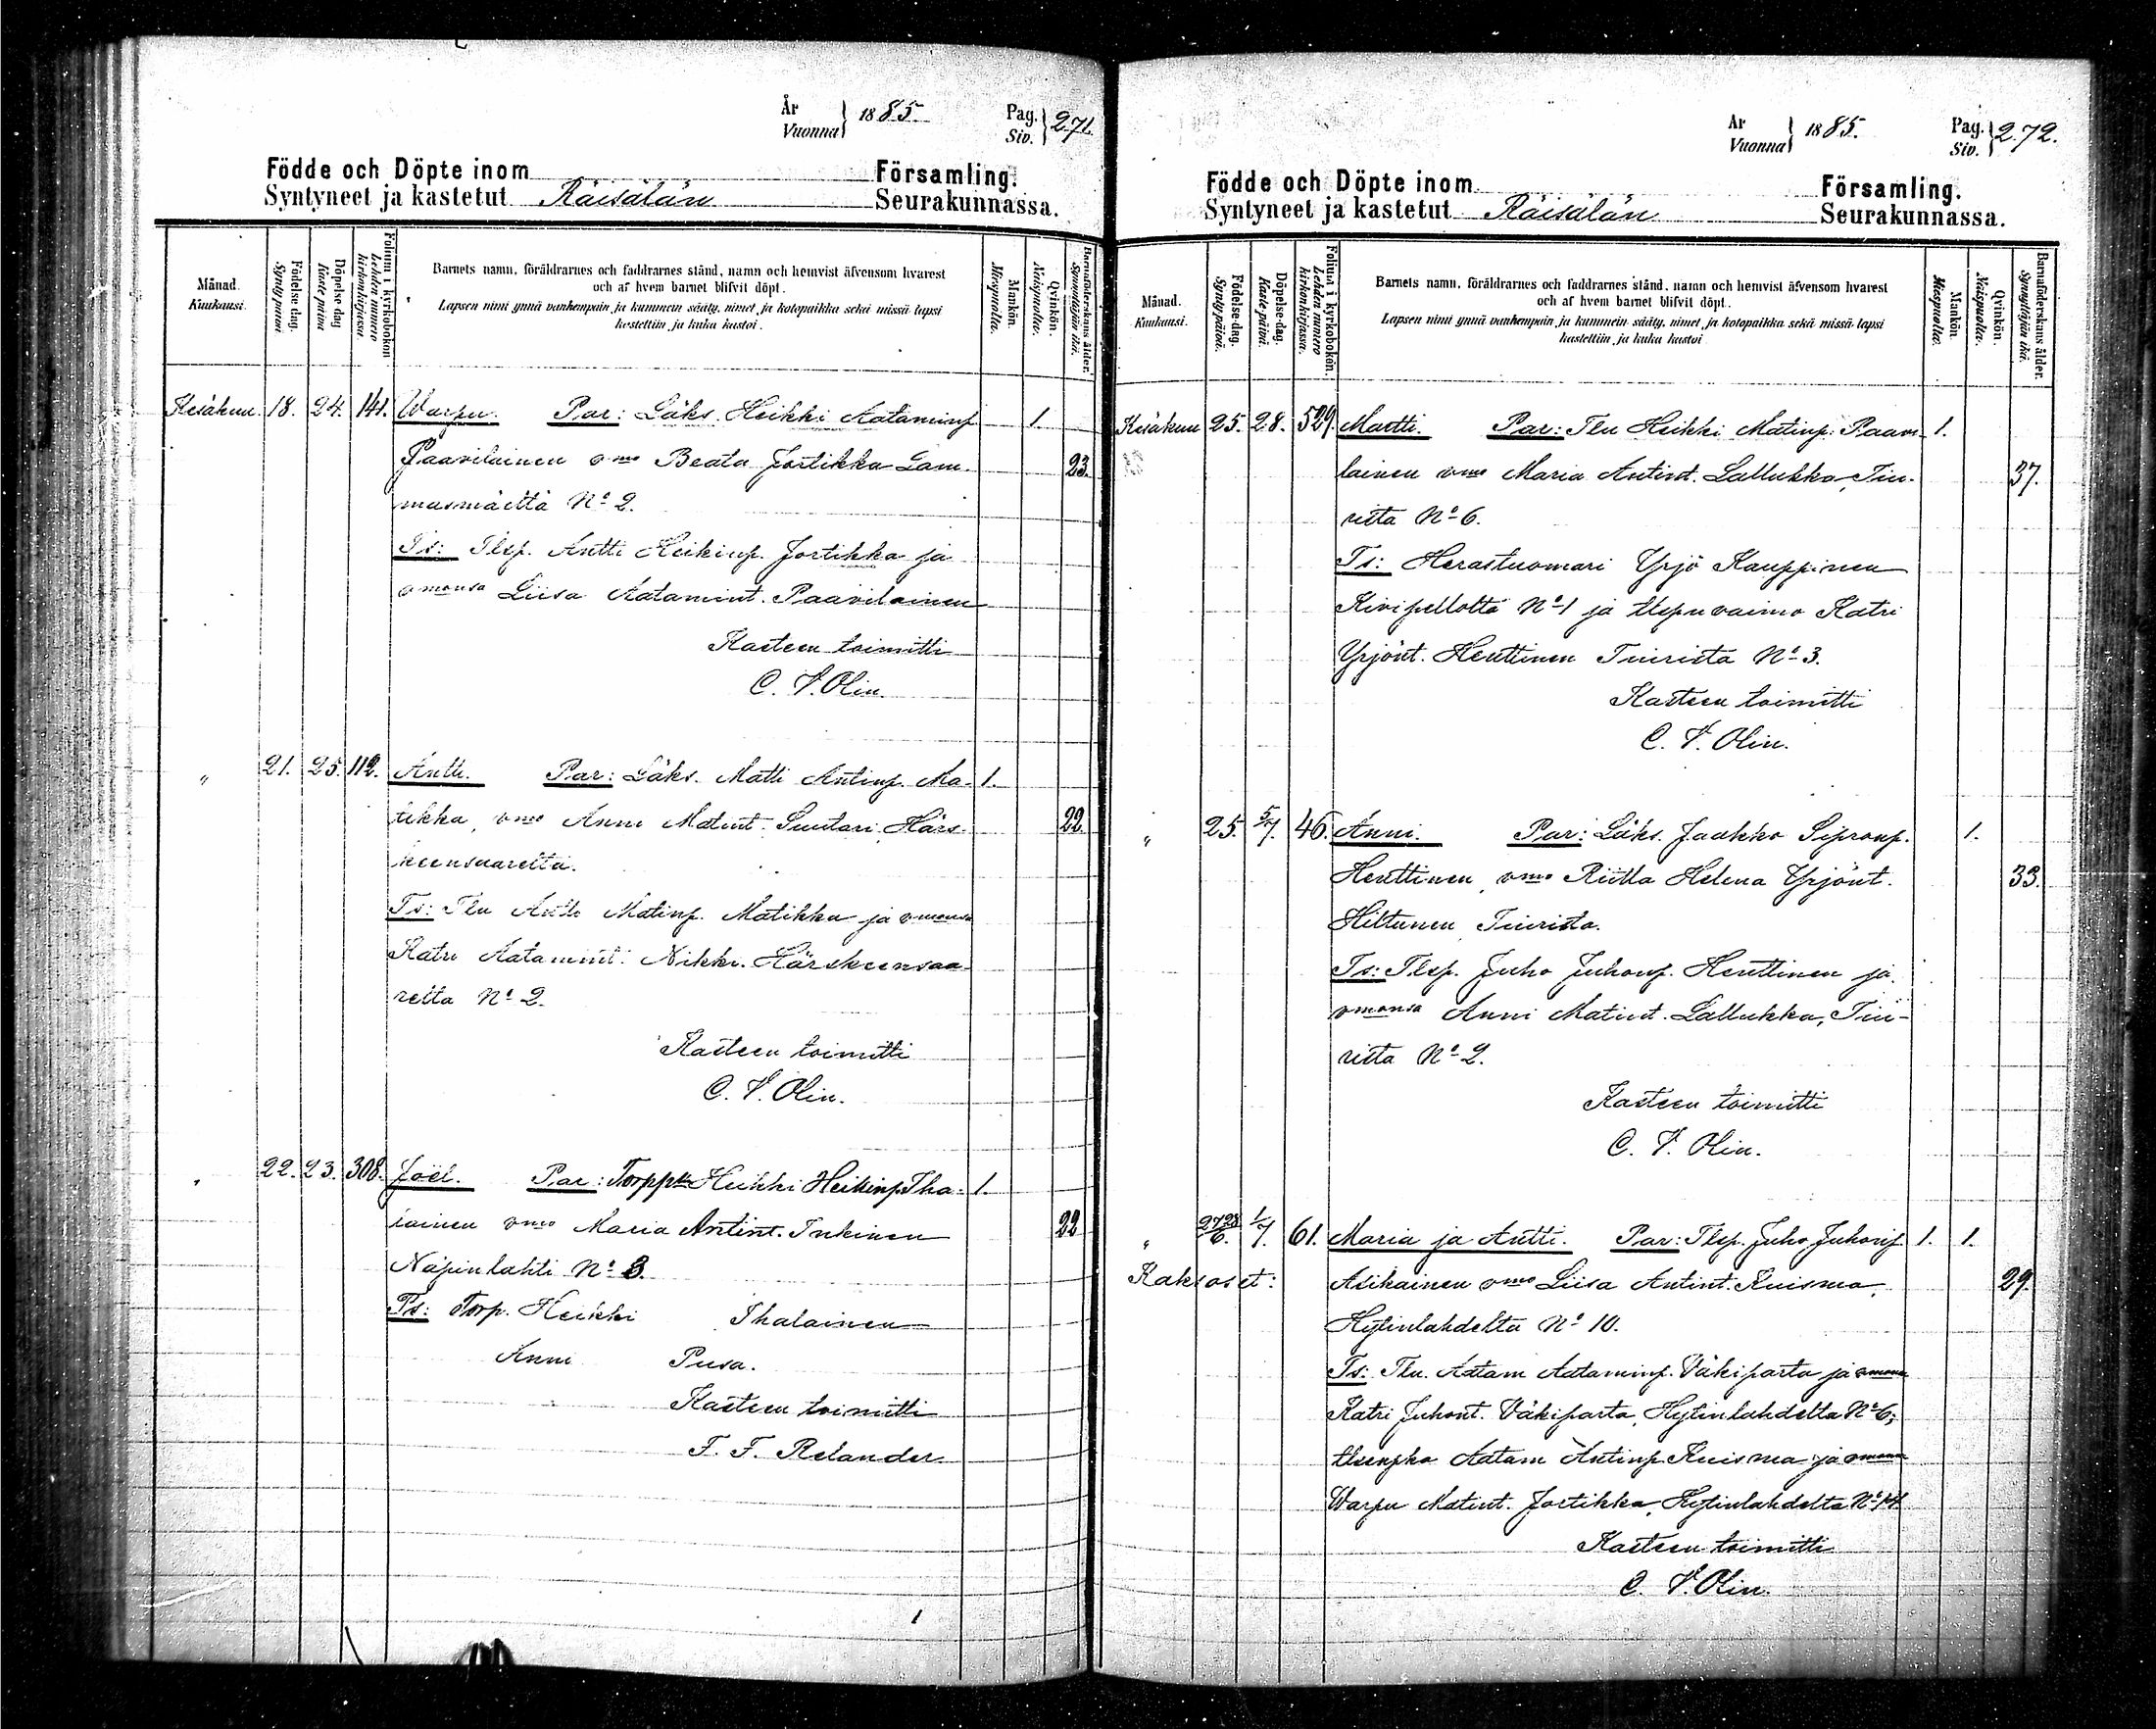 År
Vuonna } 1885.
Pag.
Siv. } 271.
Födde och Döpte inom Församling.
Syntyneet ja kastetut Räisälän Seurakunnassa.
Månad.
Kuukausi.
Födelse-dag.
Synty-päivä.
Döpelse-dag.
Kaste-päivä.
Folium i kyrkoboken.
Lehden numero kirkonkirjassa.
Barnets namn, föräldrarnes och faddrarnes stånd, namn och hemvist äfvensom hvarest
och af hvem barnet blifvit döpt.
Lapsen nimi ynnä vanhempain ja kummein sääty, nimet ja kotopaikka sekä missä lapsi
kastettiin ja kuka kastoi.
Mankön.
Miespuolta.
Qvinkön.
Naispuolta.
Barnaföderskans ålder.
Synnyttäjän ikä.
Kesäkuu. 18. 24. 141. Warpu. Par: Läks. Heikki Aataminp. 1.
Paavilainen vmo Beata Jortikka Lam- 23.
masmäeltä No 2.
Ts: Tlsp. Antti Heikinp. Jortikka ja
vmonsa Liisa Aatamint. Paavilainen
Kasteen toimitti
C. F. Olin.
" 21. 25. 112. Antti. Par: Läks. Matti Antinp. Ma- 1.
tikka, vmo Anni Matint. Suutari, Härs- 22.
keensaarelta.
Ts: Tln Antti Matinp. Matikka ja vmonsa
Katri Aatamint. Nikki. Härskeensaa-
relta No 2.
Kasteen toimitti
C. F. Olin.
" 22. 23. 308. Joël. Par: Torpp. Heikki Heikinp. Iha- 1.
lainen vmo Maria Antint. Inkinen 22
Näpinlahti No 3.
Ts: Torp. Heikki Ihalainen
Anni Pusa.
Kasteen toimitti
F. F. Relander
1
År
Vuonna } 1885.
Pag.
Siv. } 272.
Födde och Döpte inom Församling.
Syntyneet ja kastetut Räisälän Seurakunnassa.
Månad.
Kuukausi.
Födelse-dag.
Synty-päivä.
Döpelse-dag.
Kaste-päivä.
Folium i kyrkoboken.
Lehden numero kirkonkirjassa.
Barnets namn, föräldrarnes och faddrarnes stånd, namn och hemvist äfvensom hvarest
och af hvem barnet blifvit döpt.
Lapsen nimi ynnä vanhempain ja kummein sääty, nimet ja kotopaikka sekä missä lapsi
kastettiin ja kuka kastoi
Mankön
Miespuolta.
Qvinkön.
Naispuolta.
Barnaföderskans ålder.
Synnyttäjän ikä.
Kesäkuu 25. 28. 529. Martti. Par: Tln Heikki Matinp. Paavi- 1.
lainen vmo Maria Antint. Lallukka, Tiu- 37.
rista No 6.
Ts: Herastuomari Yrjö Kauppinen
Kivipellolta No 1 ja tlspn vaimo Katri
Yrjönt. Henttinen Tiurista No 3.
Kasteen toimitti
C. F. Olin.
" 25. 5/7. 46. Anni. Par: Läks. Jaakko Sipronp. 1.
Henttinen, vmo Riitta Helena Yrjönt. 33.
Hiltunen Tiurista.
Ts: Tlsp. Juho Juhonp. Henttinen ja
vmonsa Anni Matint. Lallukka, Tiu-
rista No 2.
Kasteen toimitti
C. F. Olin.
" 27 28/6. 1/7. 61. Maria ja Antti. Par: Tlsp. Juho Juhonp. 1. 1.
Kaksoset: Asikainen vmo Liisa Antint. Kuisma, 29.
Hytinlahdelta No 10.
Ts: Tln. Aatam Aataminp. Väkiparta ja vmonsa
Katri Juhont. Väkiparta, Hytinlahdelta No 6;
tlsenpka Aatam Antinp. Kuisma ja vmonsa
Warpu Matint. Jortikka, Hytinlahdelta No 14.
Kasteen toimitti
C. F. Olin.